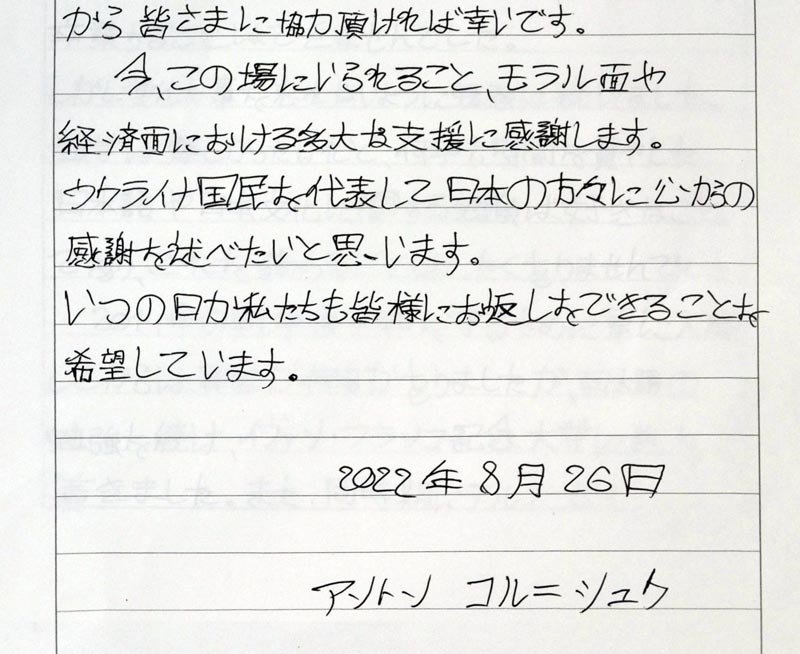 から皆さまに協力頂ければ幸いです。
今、この場にいられること、モラル面や
経済面における多大な支援に感謝します。
ウクライナ国民を代表して日本の方々に心からの
感謝を述べたいと思います。
いつの日か私たちも皆様にお返しをできることを
希望しています。
2022年8月26日
アントン コルニシュク